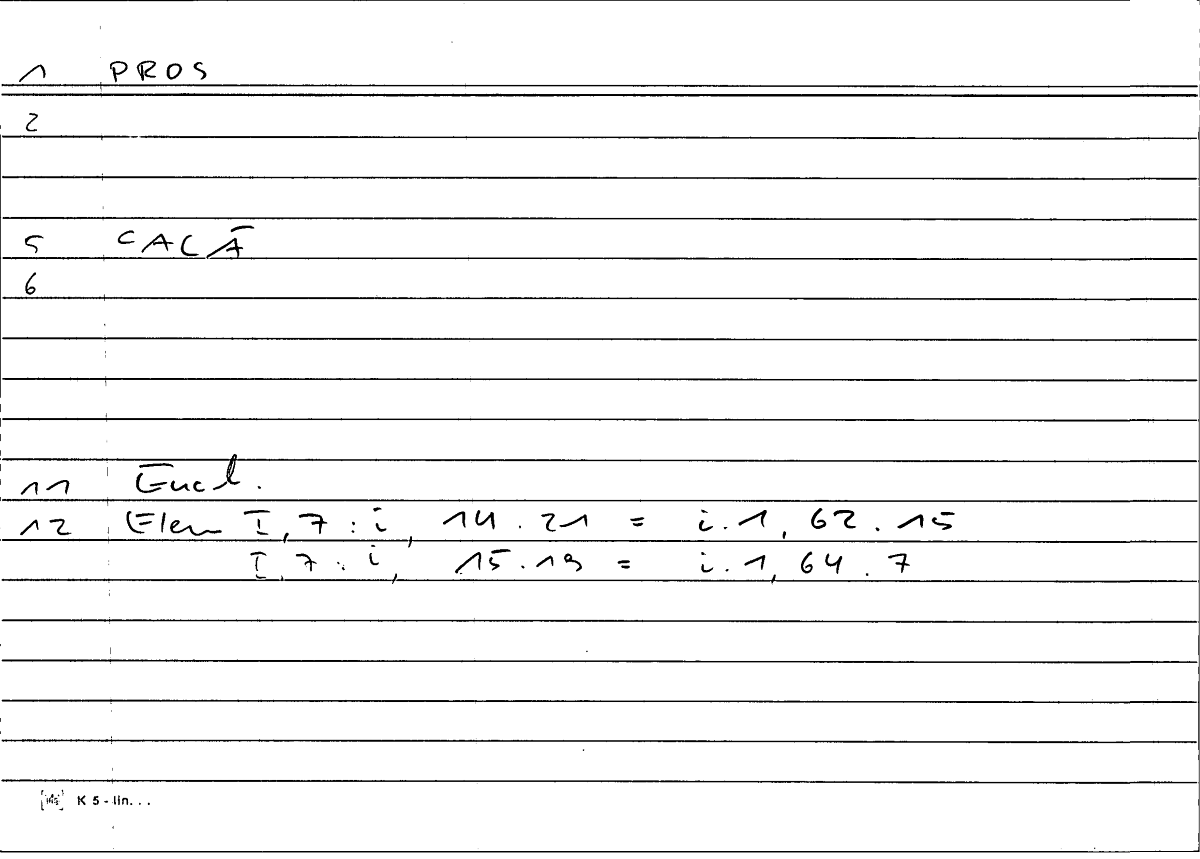 1 PROS
2
5 CACĀ
6
11 Eucl.
12 Elem I, 7 : i, 14 . 21 = i . 1, 62 . 15
I, 7 : i, 15 . 19 = i . 1, 64 . 7
K 5 - lin. . .